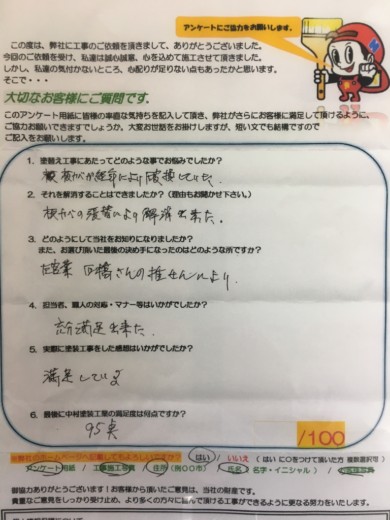 アンケートにご協力をお願いします。
この度は、弊社に工事のご依頼を頂きまして、ありがとうございました。
今回のご依頼を受け、私達は誠心誠意、心を込めて施工させて頂きました。
しかし、私達の気付かないところ、心配りが足りない点もあったかと思います。
そこで・・・
大切なお客様にご質問です.
このアンケート用紙に皆様の率直な気持ちを記入して頂き、弊社がさらにお客様に満足して頂けるように、
ご協力お願いできますでしょうか。大変お世話をお掛けしますが、短い文でも結構ですので
ご記入をお願いします。
1. 塗替え工事にあたってどのような事でお悩みでしたか?
により破損していた.
2. それを解消することはできましたか?(理由もお聞かせ下さい。)
により解消出来た.
3. どのようにして当社をお知りになりましたか?
また、お選び頂いた最後の決め手になったのはどのような所ですか?
さんの推せんにより.
4. 担当者、職人の対応・マナー等はいかがでしたか?
満足出来た.
5. 実際に塗装工事をした感想はいかがでしたか?
満足している
6. 最後に中村塗装工業の満足度は何点ですか?
95点
/100
※弊社のホームページへ記載してもよろしいですか? はい / いいえ (はい に○をつけて頂いた方 複数選択可)
アンケート用紙 / 工事施工写真 / 住所(例○○市) / 氏名(名字・イニシャル) /
御協力ありがとうございます!お客様から頂いたご意見は、当社の財産です。
貴重なご意見をしっかり受け止め、より多くの方々に喜んで頂ける工事ができるように更なる努力をいたします。